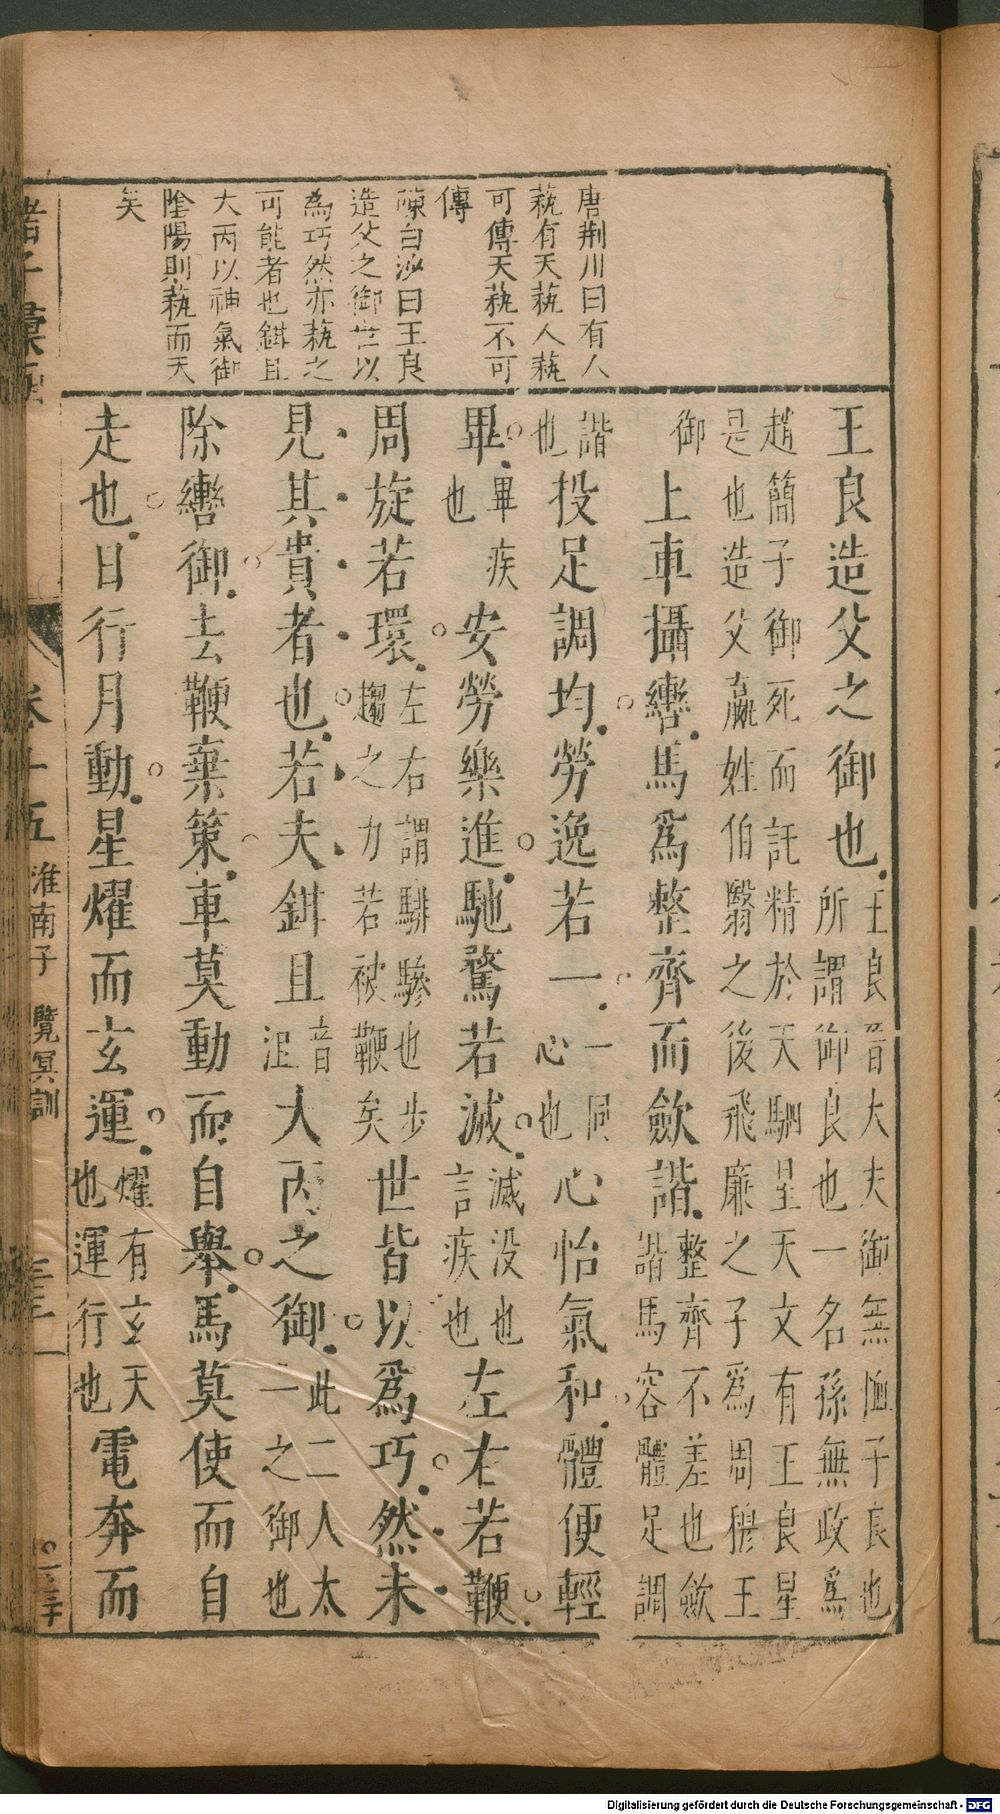 唐荆川曰有人
蓺有天蓺人蓺
可傳天蓺不可
傳
陳白沙曰王良
造父之御世以
為巧然亦蓺之
可能者也鉗且
大丙以神氣御
陰陽則蓺而天
矣
王良造父之御也王良晉大夫御無恤子良也
所謂御良也一名孫無政爲
趙簡子御死而託精於天駟星天文有王良星
是也造父嬴姓伯翳之後飛廉之子爲周穆王
御上車攝轡馬爲整齊而歛諧整齊不差也歛
諧馬容體足調
諧
也投足調均勞逸若一一同
心也心怡氣和體便輕
畢畢疾
也安勞樂進馳騖若滅滅没也
言疾也左右若鞭
周旋若環左右謂騑驂也步
趨之力若被鞭矣世皆以爲巧然未
見其貴者也若夫鉗且音
沮大丙之御此二人太
一之御也
除轡御去鞭棄策車莫動而自舉馬莫使而自
走也日行月動星燿而玄運燿有玄天
也運行也電奔而
卷十五 淮南子 覽冥訓
Digitalisierung gefördert durch die Deutsche Forschungsgemeinschaft - DFG